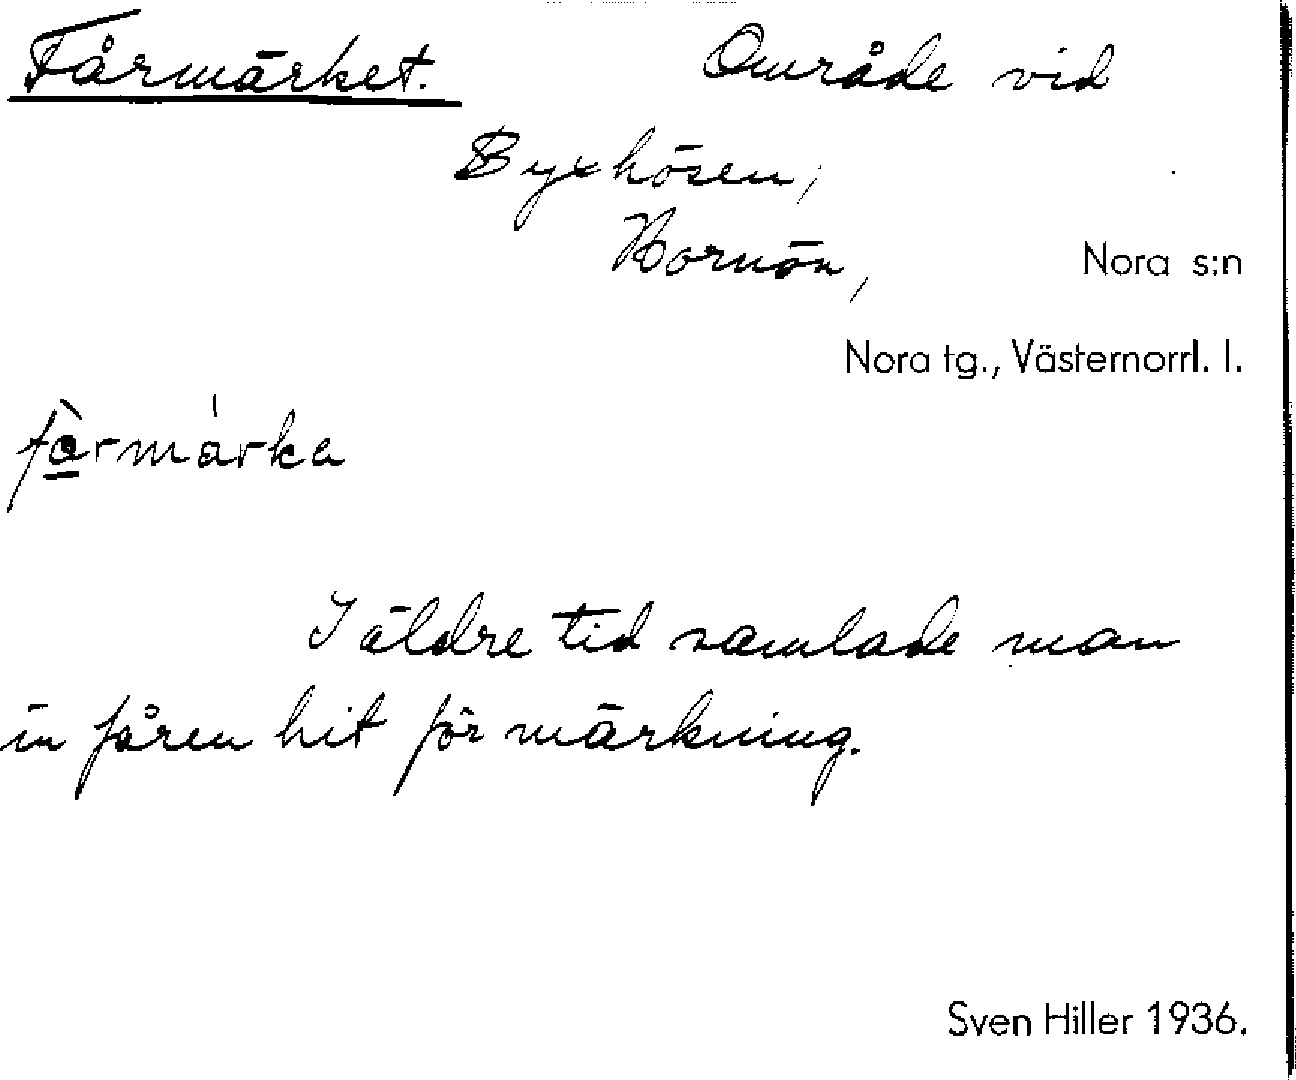 Fårmärket. Område vid
Byxhösen,
Hornön, Nora s:n
Nora tg., Västernorrl. l.
fàrmárka
I äldre tid samlade man
in fåren hit för märkning.
Sven Hiller 1936.